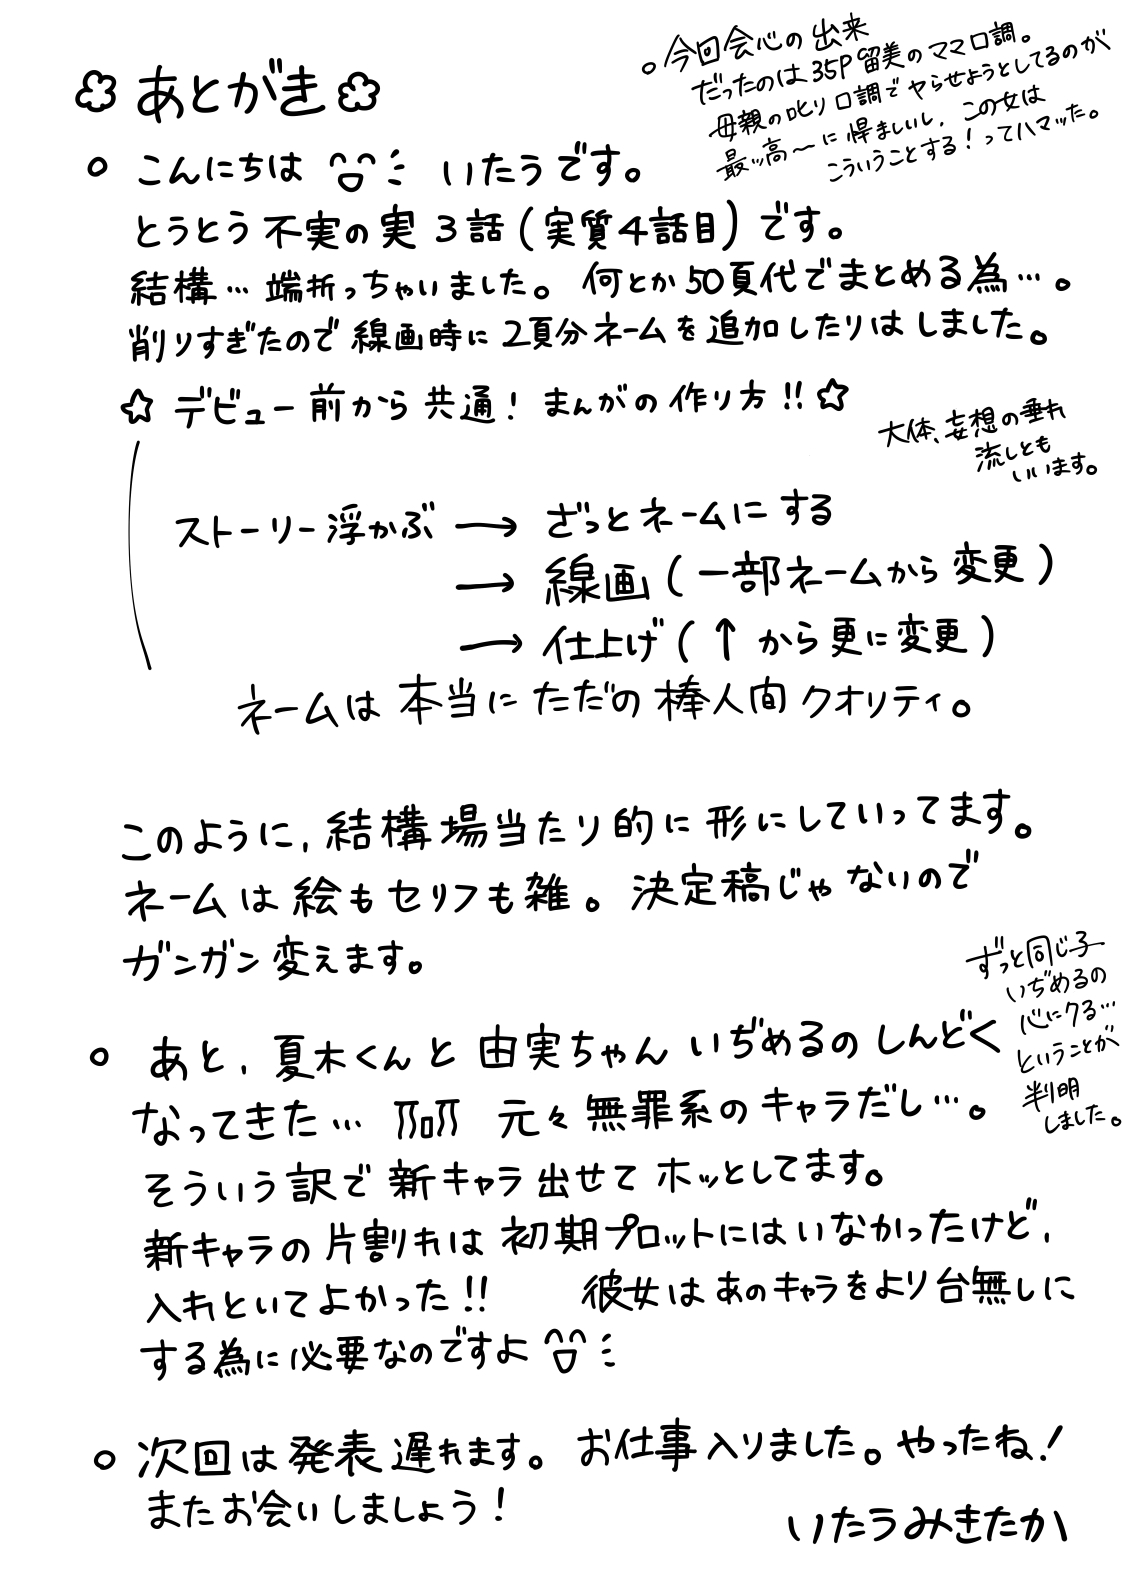 あとがき
。今回会心の出来
だったのは35P留美のママ口調。
母親の叱り口調でヤらせようとしてるのが
最ッ高〜に悍ましいし、この女は
こういうことする！ってハマッた。
○ こんにちは いたうです。
とうとう不実の実３話(実質４話目)です。
結構…端折っちゃいました。何とか50頁代でまとめる為…。
削りすぎたので線画時に２頁分ネームを追加したりはしました。
☆デビュー前から共通！まんがの作り方!!☆
大体、妄想の垂れ
流しとも
いいます。
ストーリー浮かぶ → ざっとネームにする
→ 線画(一部ネームから変更)
→ 仕上げ(↑から更に変更)
ネームは本当にただの棒人間クオリティ。
このように、結構場当たり的に形にしていってます。
ネームは絵もセリフも雑。決定稿じゃないので
ガンガン変えます。
ずっと同じ子
いぢめるの
心にクる…
ということが
判明
しました。
○ あと、夏木くんと由実ちゃんいぢめるのしんどく
なってきた… 元々無罪系のキャラだし…。
そういう訳で新キャラ出せてホッとしてます。
新キャラの片割れは初期プロットにはいなかったけど、
入れといてよかった!! 彼女はあのキャラをより台無しに
する為に必要なのですよ
○ 次回は発表遅れます。お仕事入りました。やったね！
またお会いしましょう！
いたうみきたか